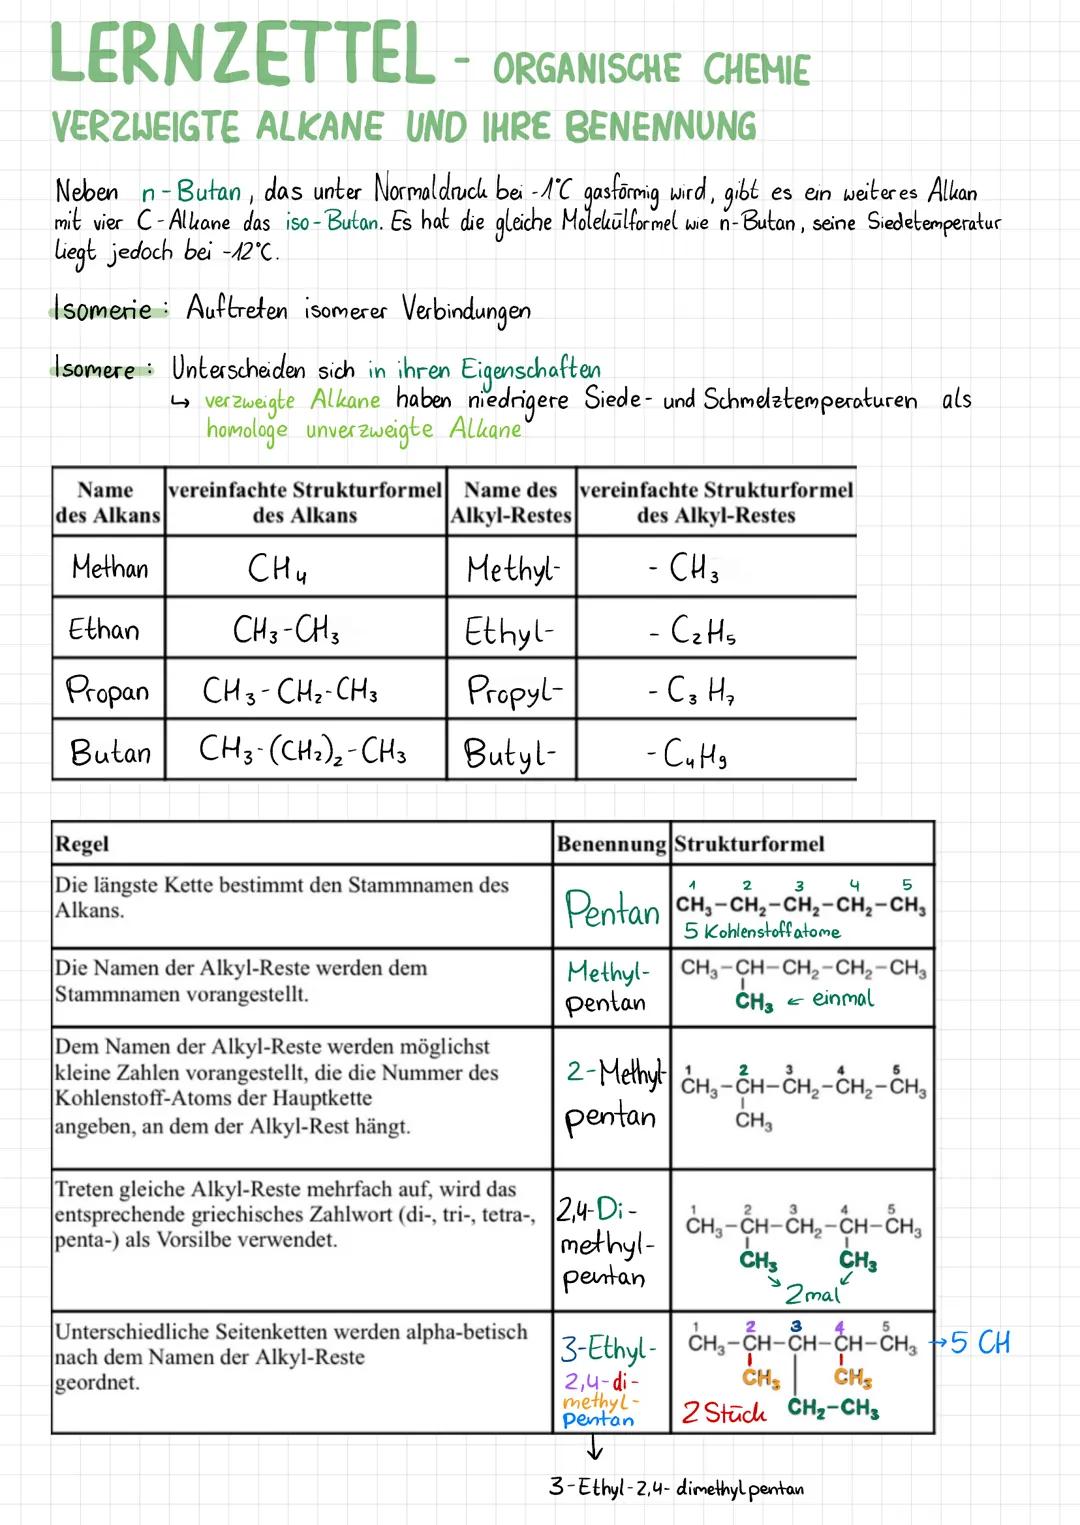 LERNZETTEL - ORGANISCHE CHEMIE
VERZWEIGTE ALKANE UND IHRE BENENNUNG
Neben n-Butan, das unter Normaldruck bei -1°C gasförmig wird, gibt es ein weiteres Alkan
mit vier C-Alkane das iso-Butan. Es hat die gleiche Molekülformel wie n-Butan, seine Siedetemperatur
liegt jedoch bei -12°C.
Isomerie: Auftreten isomerer Verbindungen
Isomere: Unterscheiden sich in ihren Eigenschaften
↳ verzweigte Alkane haben niedrigere Siede- und Schmelztemperaturen als
homologe unverzweigte Alkane
Name des Alkans | vereinfachte Strukturformel des Alkans | Name des Alkyl-Restes | vereinfachte Strukturformel des Alkyl-Restes
Methan | CH₄ | Methyl- | - CH₃
Ethan | CH₃-CH₃ | Ethyl- | - C₂H₅
Propan | CH₃-CH₂-CH₃ | Propyl- | - C₃H₇
Butan | CH₃-(CH₂)₂-CH₃ | Butyl- | - C₄H₉
Regel | Benennung | Strukturformel
Die längste Kette bestimmt den Stammnamen des
Alkans.
Pentan
1 2 3 4 5
CH₃-CH₂-CH₂-CH₂-CH₃
5 Kohlenstoffatome
Die Namen der Alkyl-Reste werden dem
Stammnamen vorangestellt.
Methyl-
pentan
CH₃-CH-CH₂-CH₂-CH₃
CH₃ ← einmal
Dem Namen der Alkyl-Reste werden möglichst
kleine Zahlen vorangestellt, die die Nummer des
Kohlenstoff-Atoms der Hauptkette
angeben, an dem der Alkyl-Rest hängt.
2-Methyl-
pentan
1 2 3 4 5
CH₃-CH-CH₂-CH₂-CH₃
CH₃
Treten gleiche Alkyl-Reste mehrfach auf, wird das
entsprechende griechisches Zahlwort (di-, tri-, tetra-,
penta-) als Vorsilbe verwendet.
2,4-Di-
methyl-
pentan
1 2 3 4 5
CH₃-CH-CH₂-CH-CH₃
CH₃ CH₃
2mal
Unterschiedliche Seitenketten werden alpha-betisch
nach dem Namen der Alkyl-Reste
geordnet.
3-Ethyl-
2,4-di-
methyl-
pentan
1 2 3 4 5
CH₃-CH-CH-CH-CH₃ → 5 CH
CH₃ CH₃
2 Stück CH₂-CH₃
3-Ethyl-2,4-dimethylpentan